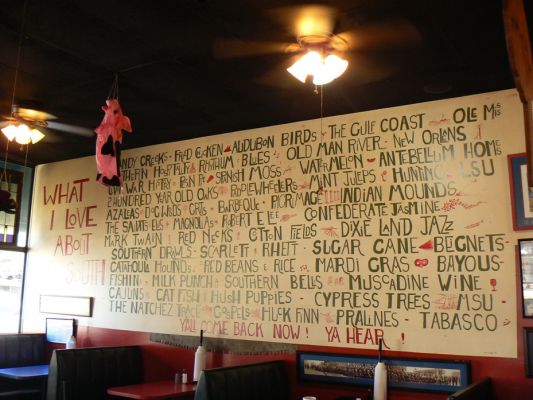 WHAT I LOVE ABOUT SOUTH
ANDY CREEKS · FRIED CHICKEN · AUDUBON BIRDS · THE GULF COAST · OLE MISS
HOSPITALITY · RHYTHUM BLUES · OLD MAN RIVER · NEW ORLEANS
WAR HISTORY · SPANISH MOSS · WATERMELON · ANTEBELLUM HOMES
200 YEAR OLD OAKS · ROPESWINGS · MINT JULEPS · HUNTING · LSU
AZALEAS · DOGWOODS · GRITS · BARBEQUE · PILGRIMAGE · INDIAN MOUNDS
THE SAINTS · ELVIS · MAGNOLIAS · ROBERT E LEE · CONFEDERATE JASMINE
MARK TWAIN · RED NECKS · COTTON FIELDS · DIXIE LAND JAZZ
SOUTHERN DRAWLS · SCARLETT & RHETT · SUGAR CANE · BEGNETS
CATAHOULA HOUNDS · RED BEANS & RICE · MARDI GRAS · BAYOUS
FISHIN · MILK PUNCH · SOUTHERN BELLS · MUSCADINE WINE
CAJUNS · CAT FISH · HUSH PUPPIES · CYPRESS TREES · MSU
THE NATCHEZ TRACE · GOSPELS · HUCK FINN · PRALINES · TABASCO
YA'LL COME BACK NOW! YA HEAR!